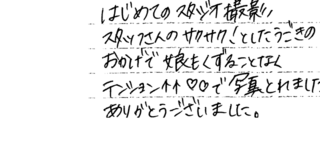 はじめてのスタジオ撮影!!
スタッフさんのサクサク!としたうごきの
おかげで娘もくずることなく
テンション↑↑♡♡で写真とれました
ありがとうございました。